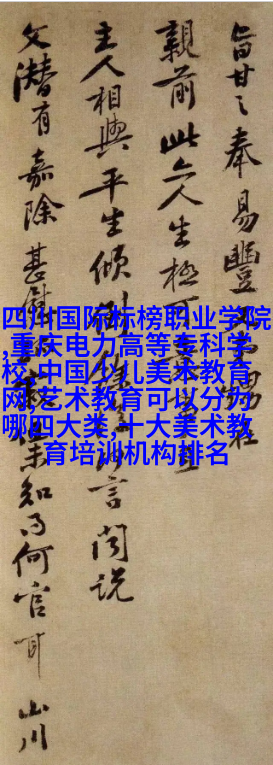 旨甘之奉易豐
親前此亦人生極可
主人相與平生傾倒言閒説
文潜有嘉除甚慰知得何官耳山川
四川国际标榜职业学院
,重庆电力高等专科学
校,中国少儿美术教育
网,艺术教育可以分为
哪四大类,十大美术教
育培训机构排名